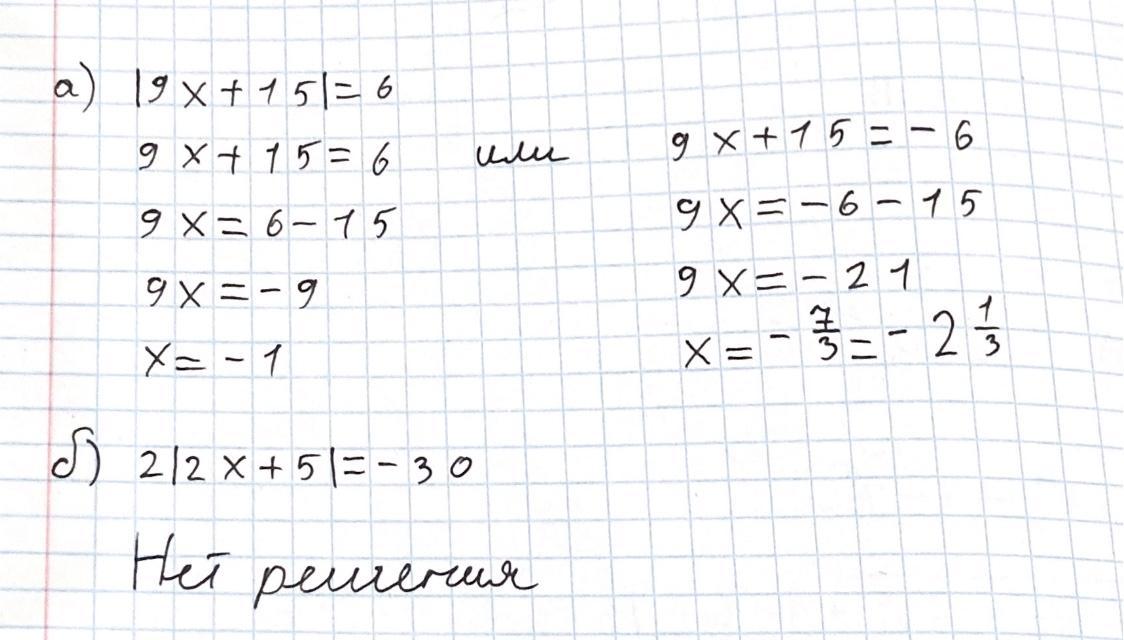 а) |9x+15|=6
9x+15=6 или 9x+15=-6
9x=6-15 9x=-6-15
9x=-9 9x=-21
x=-1 x=-7/3=-2 1/3
б) 2|2x+5|=-30
Нет решения